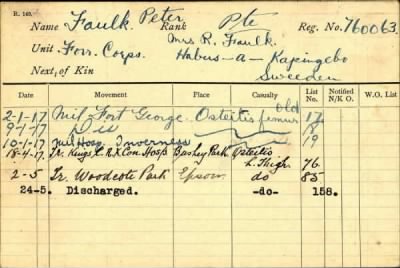 R. 149.
Name Faulk Peter Rank Pte Reg. No. 760063.
Unit Forr. Corps. Mrs R. Faulk.
Habus-a-Kapingebo
Next of Kin Sweeden
Date Movement Place Casualty List No. Notified N/K O. W.O. List
2-1-17 Mil Fort George. Osteitis femur old 17
9-1-17 Dis 18
10-1-17 Mil Hosp. Inverness 19
18-4-17. Tr. Kings C. R. X Con. Hosp Bushey Park Osteitis
L. Thigh 76
2-5 Tr. Woodcote Park Epsom do 85
24-5. Discharged. -do- 158.